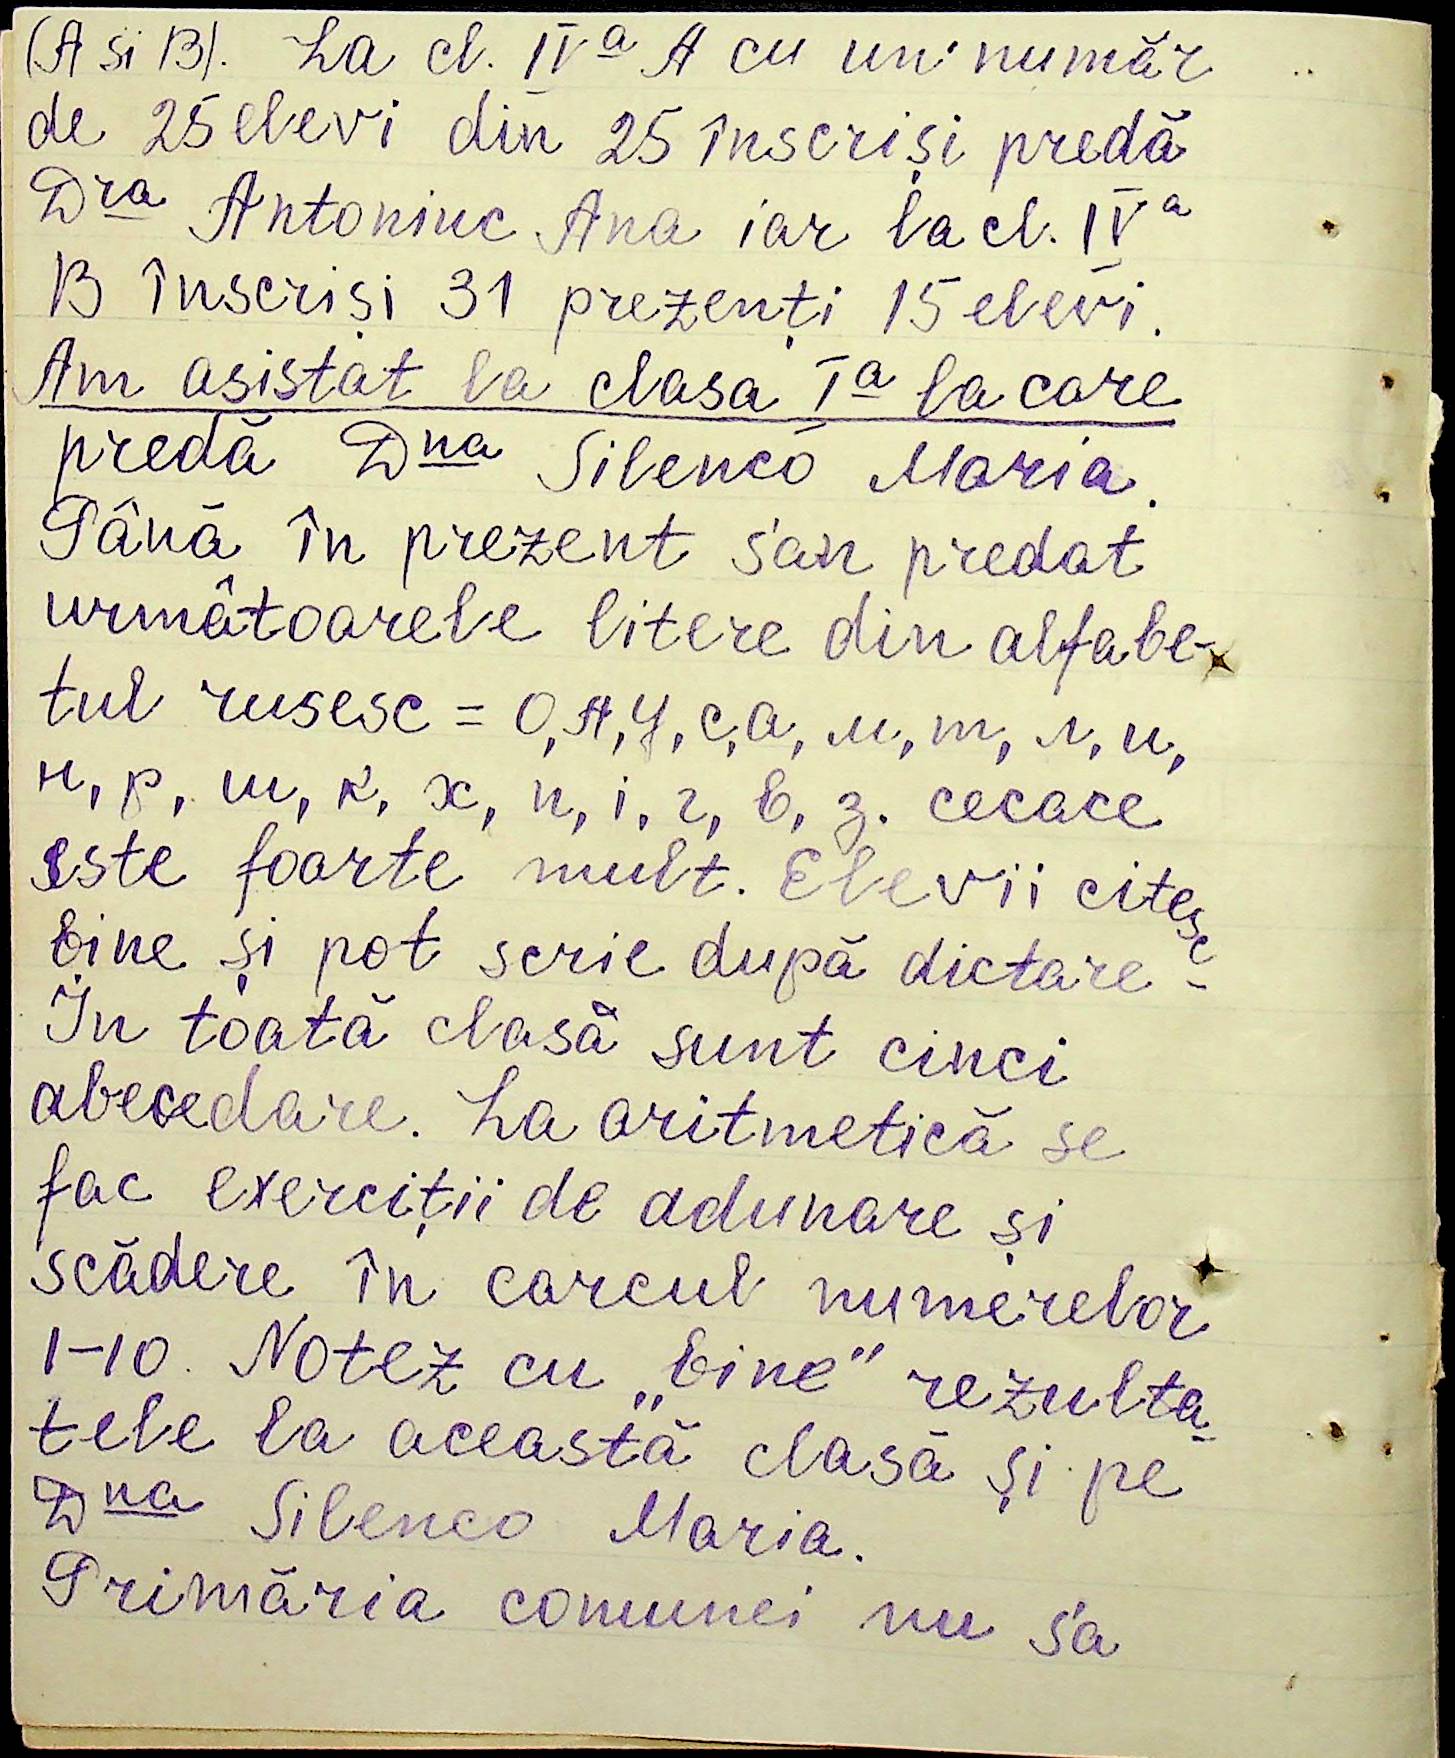 (A si B). La cl. IVª A cu un număr
de 25 elevi din 25 înscriși predă
Dra Antoniuc Ana iar la cl. IVª
B înscriși 31 prezenți 15 elevi.
Am asistat la clasa Iª la care
predă Dna Silenco Maria.
Până în prezent s'au predat
urmâtoarele litere din alfabe-
tul rusesc = О, А, У, с, а, м, т, л, и,
н, р, ш, к, х, п, i, г, в, з. ceeace
este foarte mult. Elevii citesc
bine și pot scrie după dictare-
În toată clasă sunt cinci
abecedare. La aritmetică se
fac exerciții de adunare și
scădere în carcul numerelor
1-10. Notez cu „bine" rezulta-
tele la această clasă și pe
Dna Silenco Maria.
Primăria comunei nu s'a